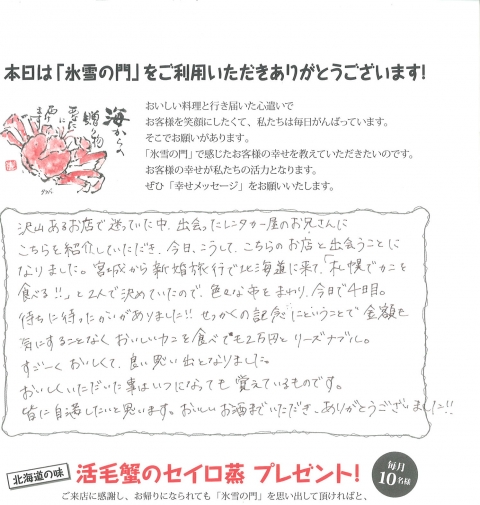 本日は「氷雪の門」をご利用いただきありがとうございます!
海からの
贈り物
おいしい料理と行き届いた心遣いで
お客様を笑顔にしたくて、私たちは毎日がんばっています。
そこでお願いがあります。
「氷雪の門」で感じたお客様の幸せを教えていただきたいのです。
お客様の幸せが私たちの活力となります。
ぜひ「幸せメッセージ」をお願いいたします。
沢山あるお店で迷っていた中、出会ったレンタカー屋のお兄さんに
こちらを紹介していただき、今日、こうして、こちらのお店と出会うことに
なりました。宮城から新婚旅行で北海道に来て、「札幌でカニを
食べる!!」と2人で決めていたので、色々な市をまわり、今日で4日目。
待ちに待ったかいがありました!!せっかくの記念にということで金額を
気にすることなくおいしいカニを食べても2万円とリーズナブル。
すごーくおいしくて、良い思い出となりました。
おいしくいただいた事はいつになっても覚えているものです。
皆に自慢したいと思います。おいしいお酒までいただき、ありがとうございました!!
北海道の味
活毛蟹のセイロ蒸 プレゼント!
毎月
10名様
ご来店に感謝し、お帰りになられても「氷雪の門」を思い出して頂ければと、